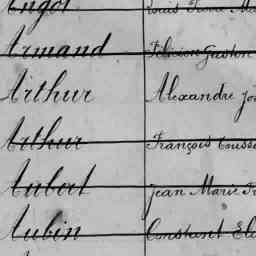 Angot
Armand Félicien Gaston
Arthur Alexandre
Arthur François
Aubert Jean Marie
Aubin Constant